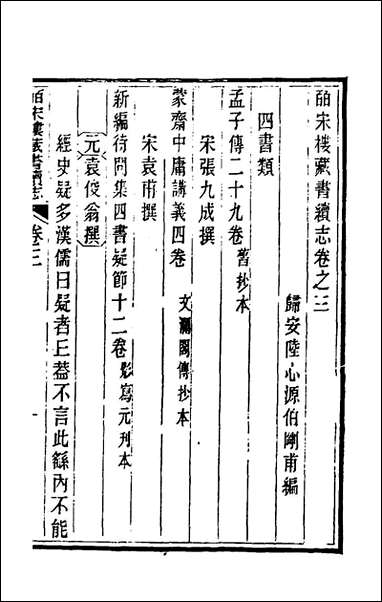 皕宋樓藏書續志卷之三
歸安陸心源伯剛甫編
四書類
孟子傳二十九卷 舊抄本
宋張九成撰
蒙齋中庸講義四卷 文瀾閣傳抄本
宋袁甫撰
新編待問集四書疑節十二卷 影寫元刊本
元袁俊翁撰
經史疑多漢儒曰疑者丘蓋不言此餘內不能
皕宋樓藏書續志 卷三 一